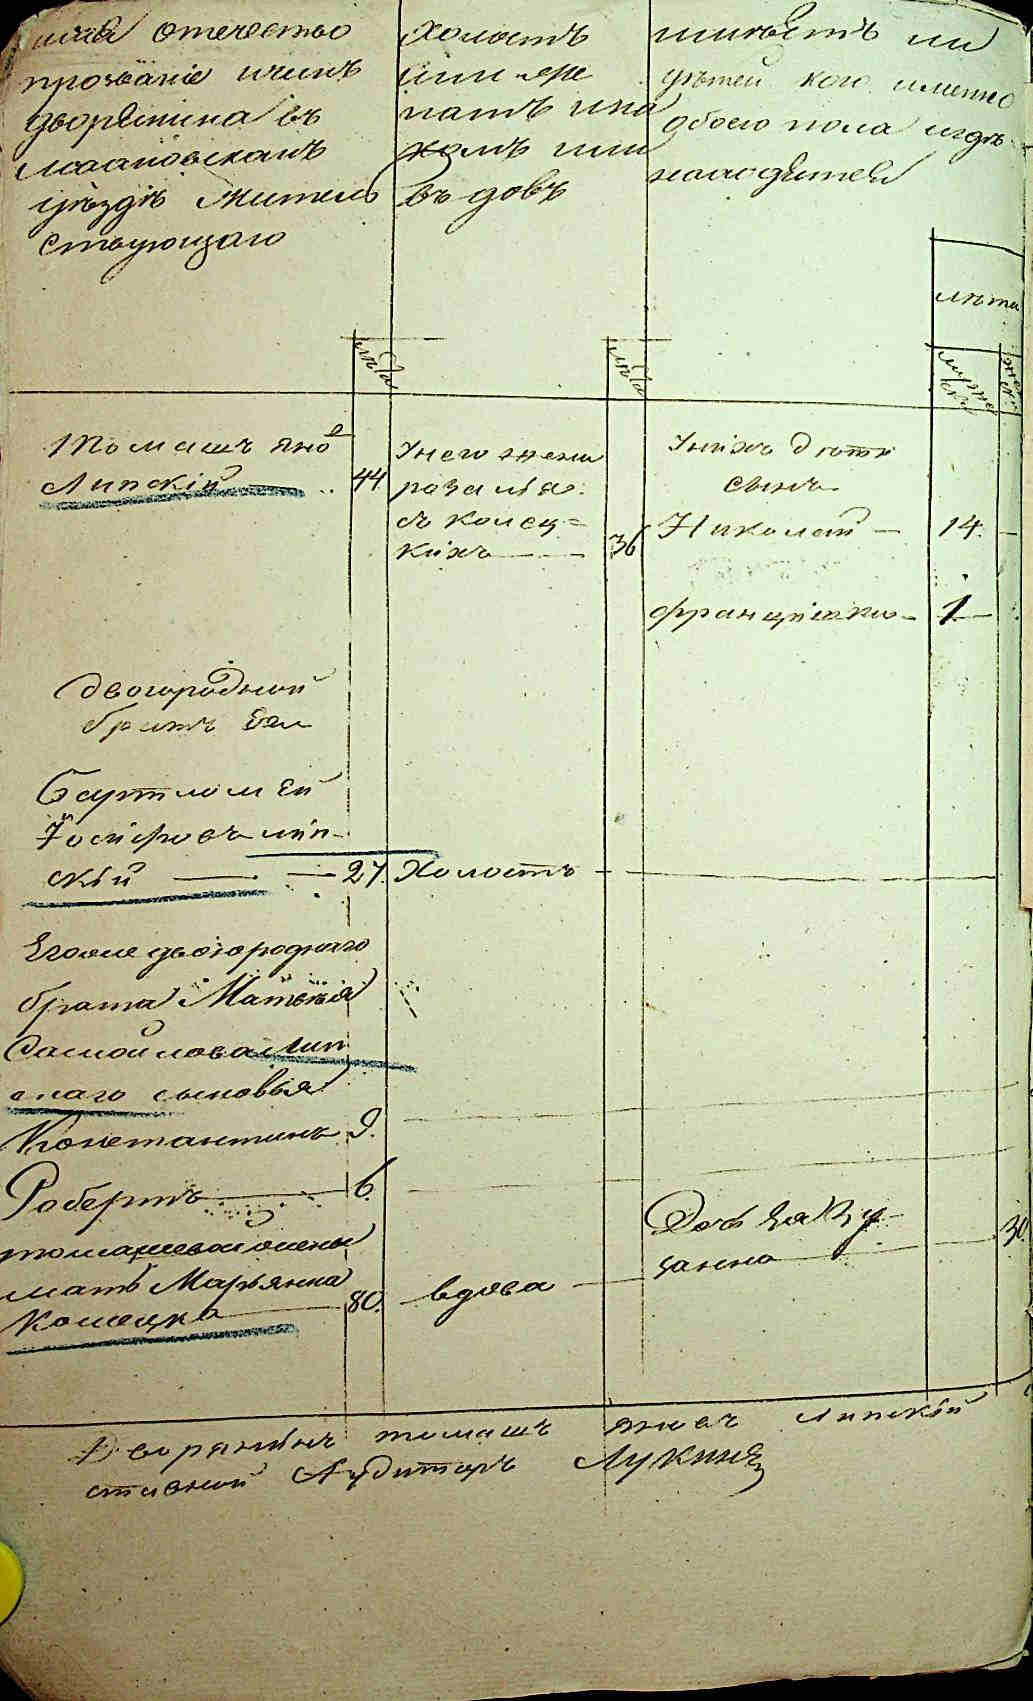 имя отечество
прозваніе и чинъ
дворянина въ
уѣздѣ житель
ствующаго
холостъ
или же
натъ и на
комъ или
въ довъ
имѣетъ ли
дѣтей кого именно
обоего пола и гдѣ
находятся
лѣта
лѣта
лѣта
мужес
ка
женс
Томашъ Яно
Липскій 44
У него жена
розалія
съ колец=
кихъ 36
У нихъ дети
сынъ
Николай 14.
францишка 1
двоюродный
братъ Его
Бартломей
Іосифовъ лип-
скій 27. Холостъ
Его же двоюроднаго
брата Матвѣя
Самойлова Лип
скаго сыновья
Константинъ 9.
Робертъ 6
томашевой жены
мать Марьянна
Колецка 80. вдова
Дочь Ея Зу-
занна 30
Дворянинъ томашъ яновъ Липскій
ставной Аудиторъ Лукинъ